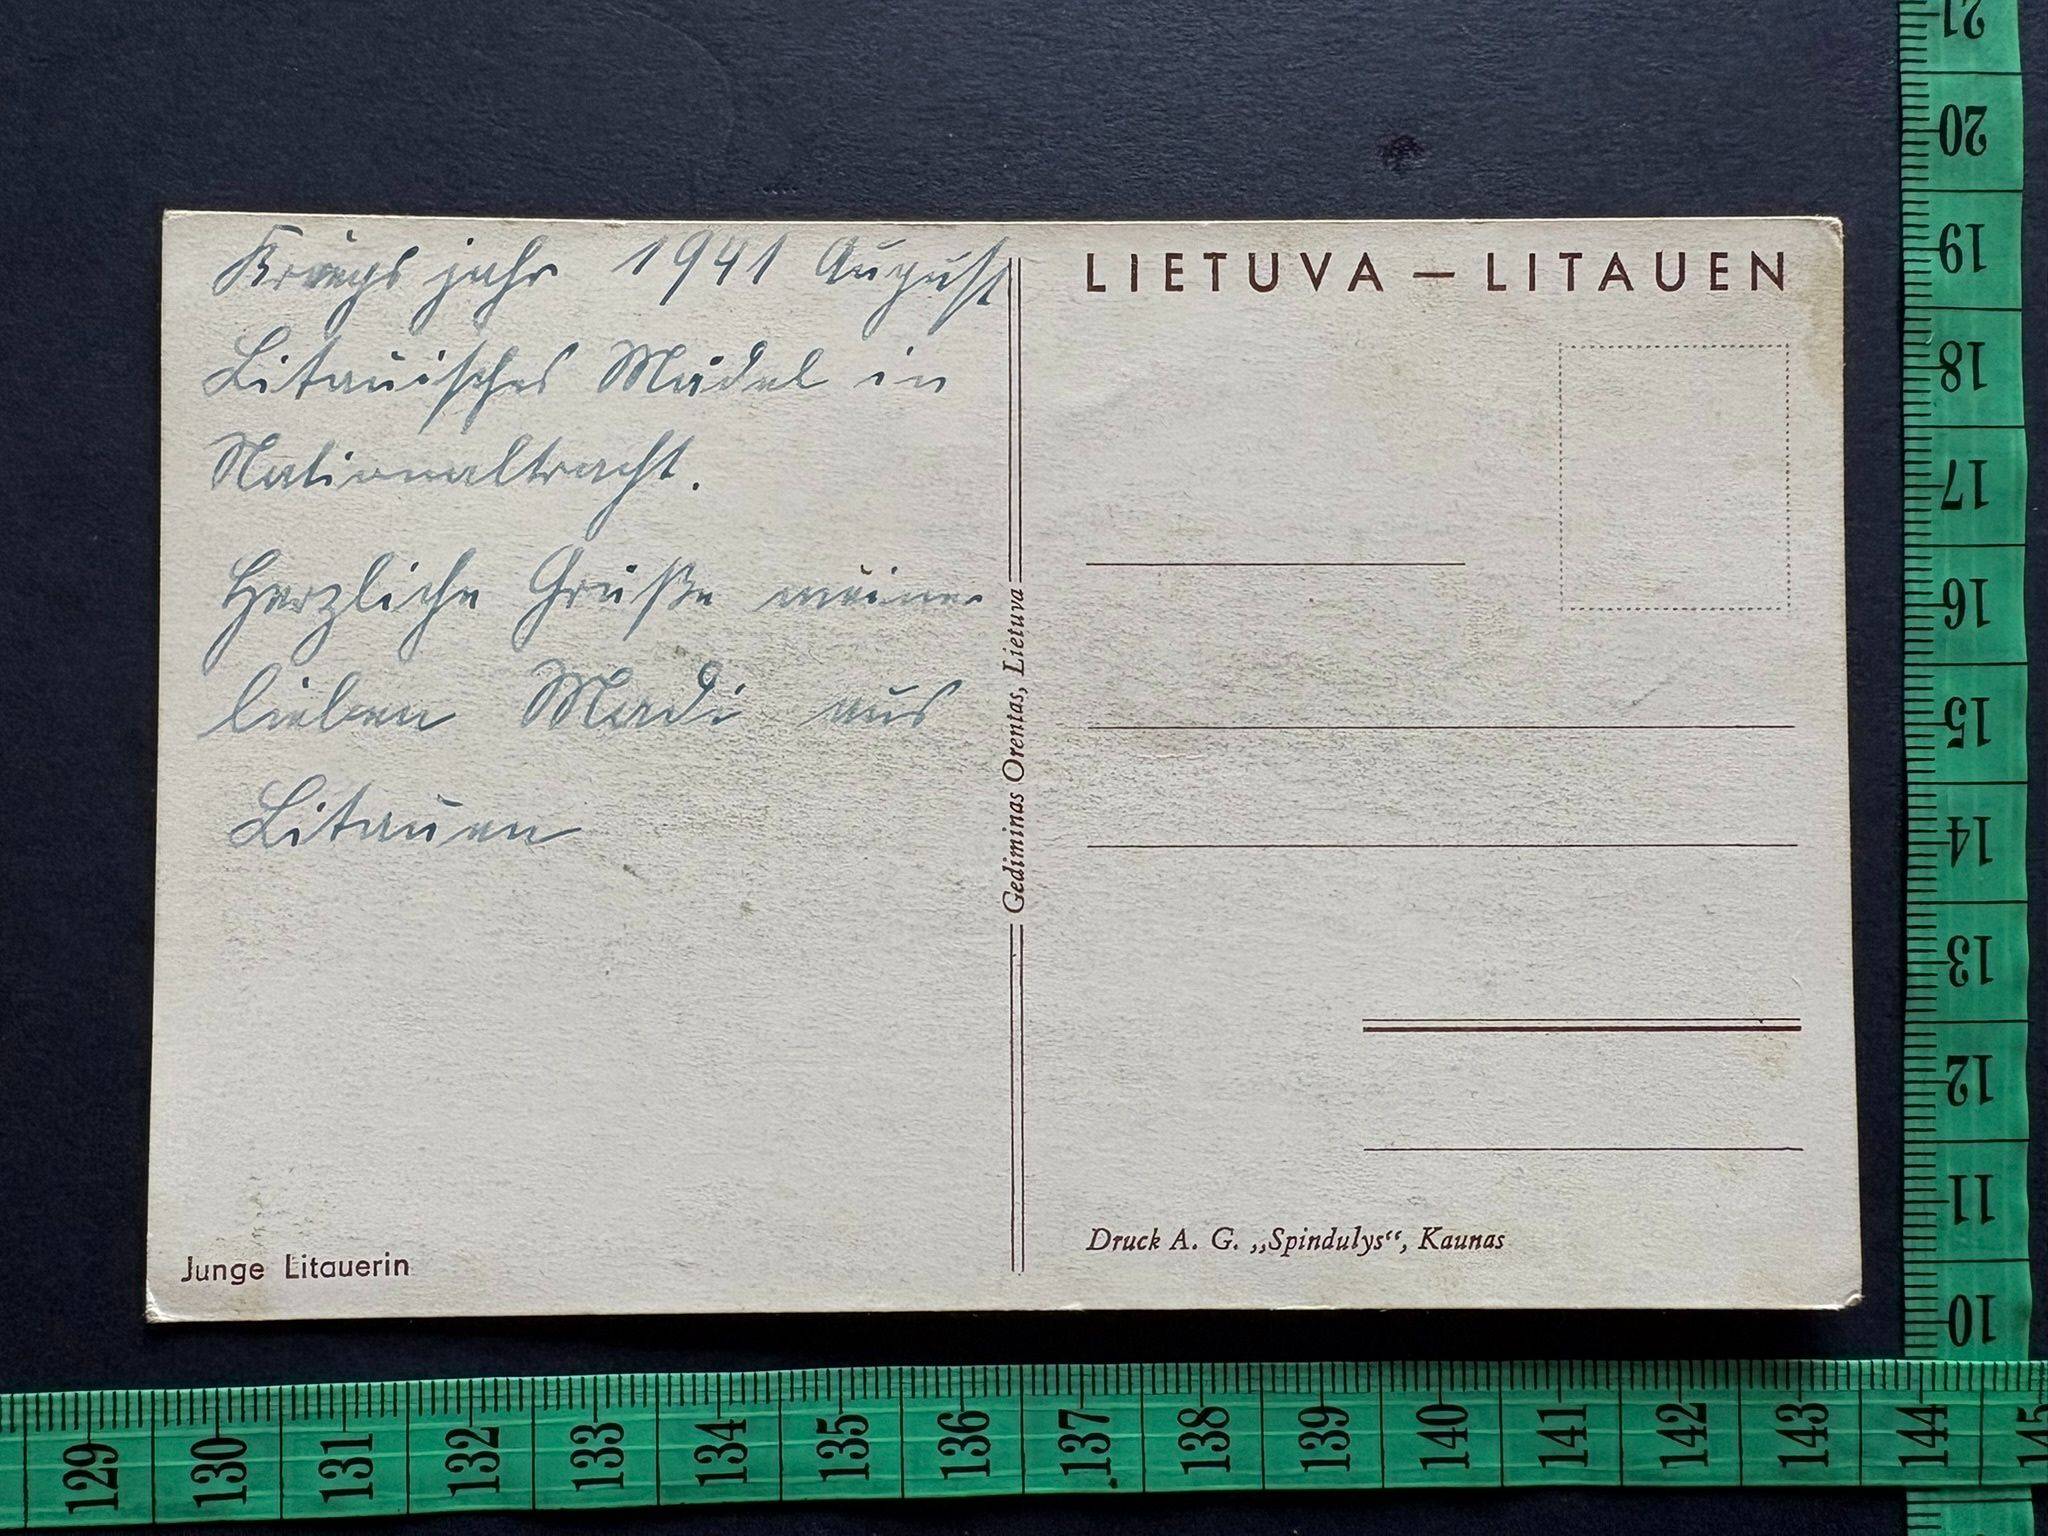 Kriegsjahr 1941 August
Litauisches Mädel in
Nationaltracht.
Herzliche Grüße meiner
lieben Madi aus
Litauen
Junge Litauerin
Gediminas Orentas, Lietuva
LIETUVA — LITAUEN
Druck A. G. „Spindulys“, Kaunas
21
20
19
18
17
16
15
14
13
12
11
10
129 130 131 132 133 134 135 136 137 138 139 140 141 142 143 144 145